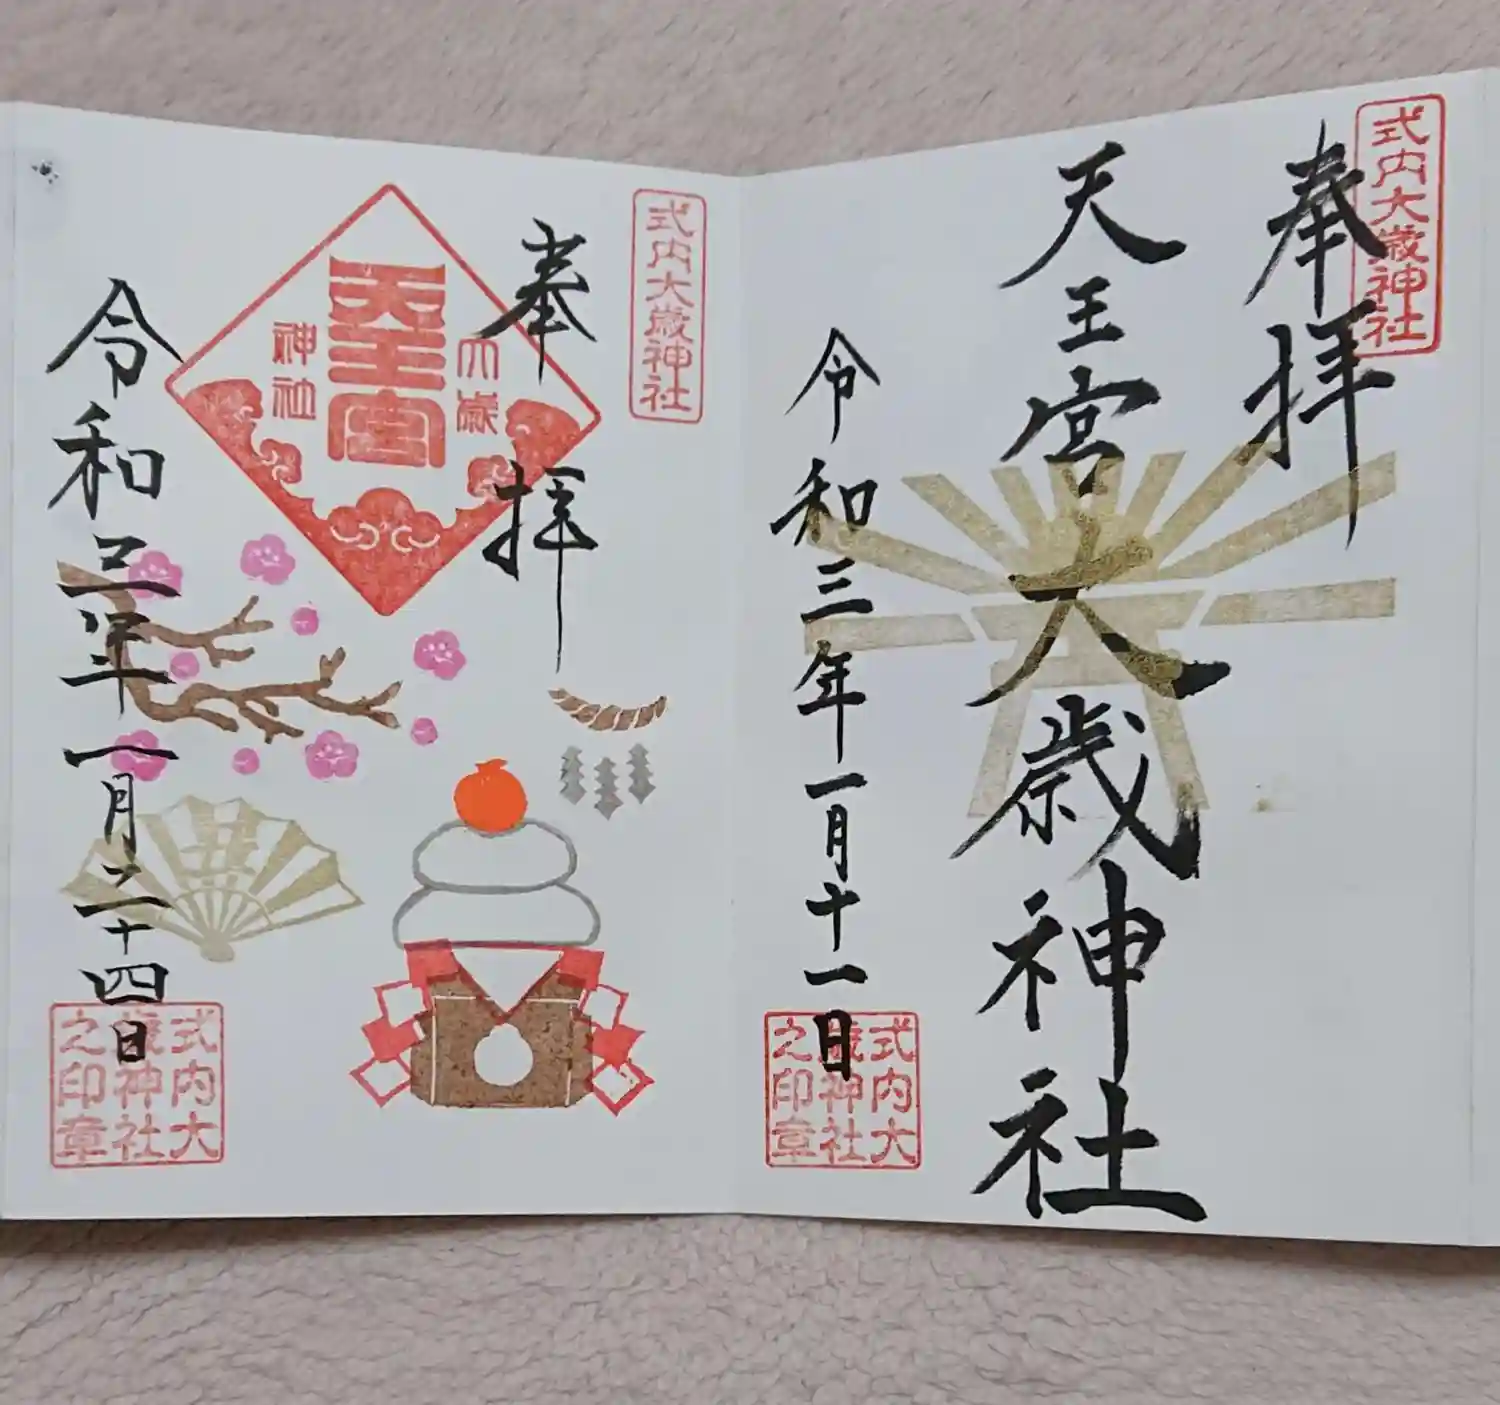 式内大歳神社
奉拝
天王宮大歳神社
令和三年一月十一日
式内大
歳神社
之印章
式内大歳神社
奉拝
大歳
天王宮
神社
令和三年一月二十四日
式内大
歳神社
之印章